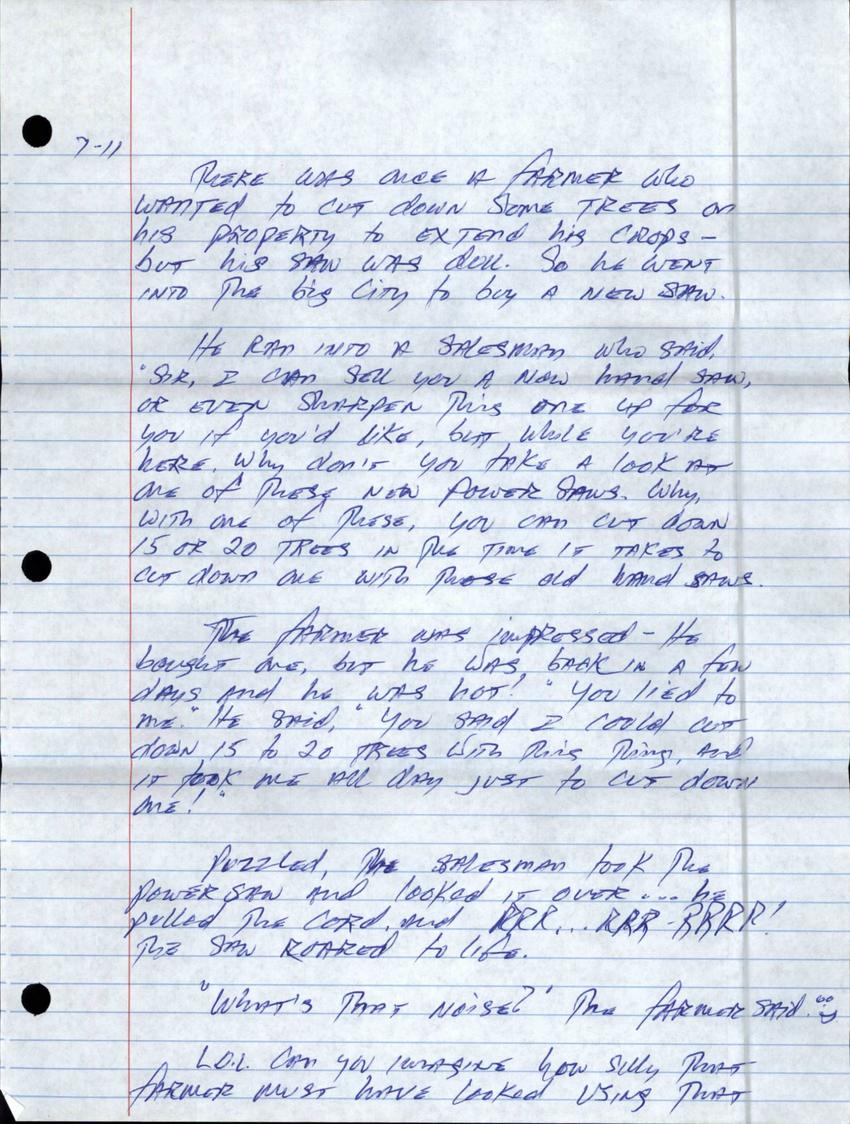 7-11
There was once a farmer who
wanted to cut down some trees on
his property to extend his crops-
but his saw was dull. So he went
into the big city to buy a new saw.
He ran into a salesman who said,
"Sir, I can sell you a new hand saw,
or even sharpen this one up for
you if you'd like, but while you're
here, why don't you take a look at
one of these new power saws. Why,
with one of these, you can cut down
15 or 20 trees in the time it takes to
cut down one with those old hand saws.
The farmer was impressed - He
bought one, but he was back in a few
days and he was hot! "You lied to
me." He said, "You said I could cut
down 15 to 20 trees with this thing, and
it took me all day just to cut down
one!"
Puzzled, the salesman took the
power saw and looked it over... he
pulled the cord, and RRR... RRR-RRRR!
The saw roared to life.
"What's that noise?" The farmer said.
L.O.L. Can you imagine how silly that
farmer must have looked using that